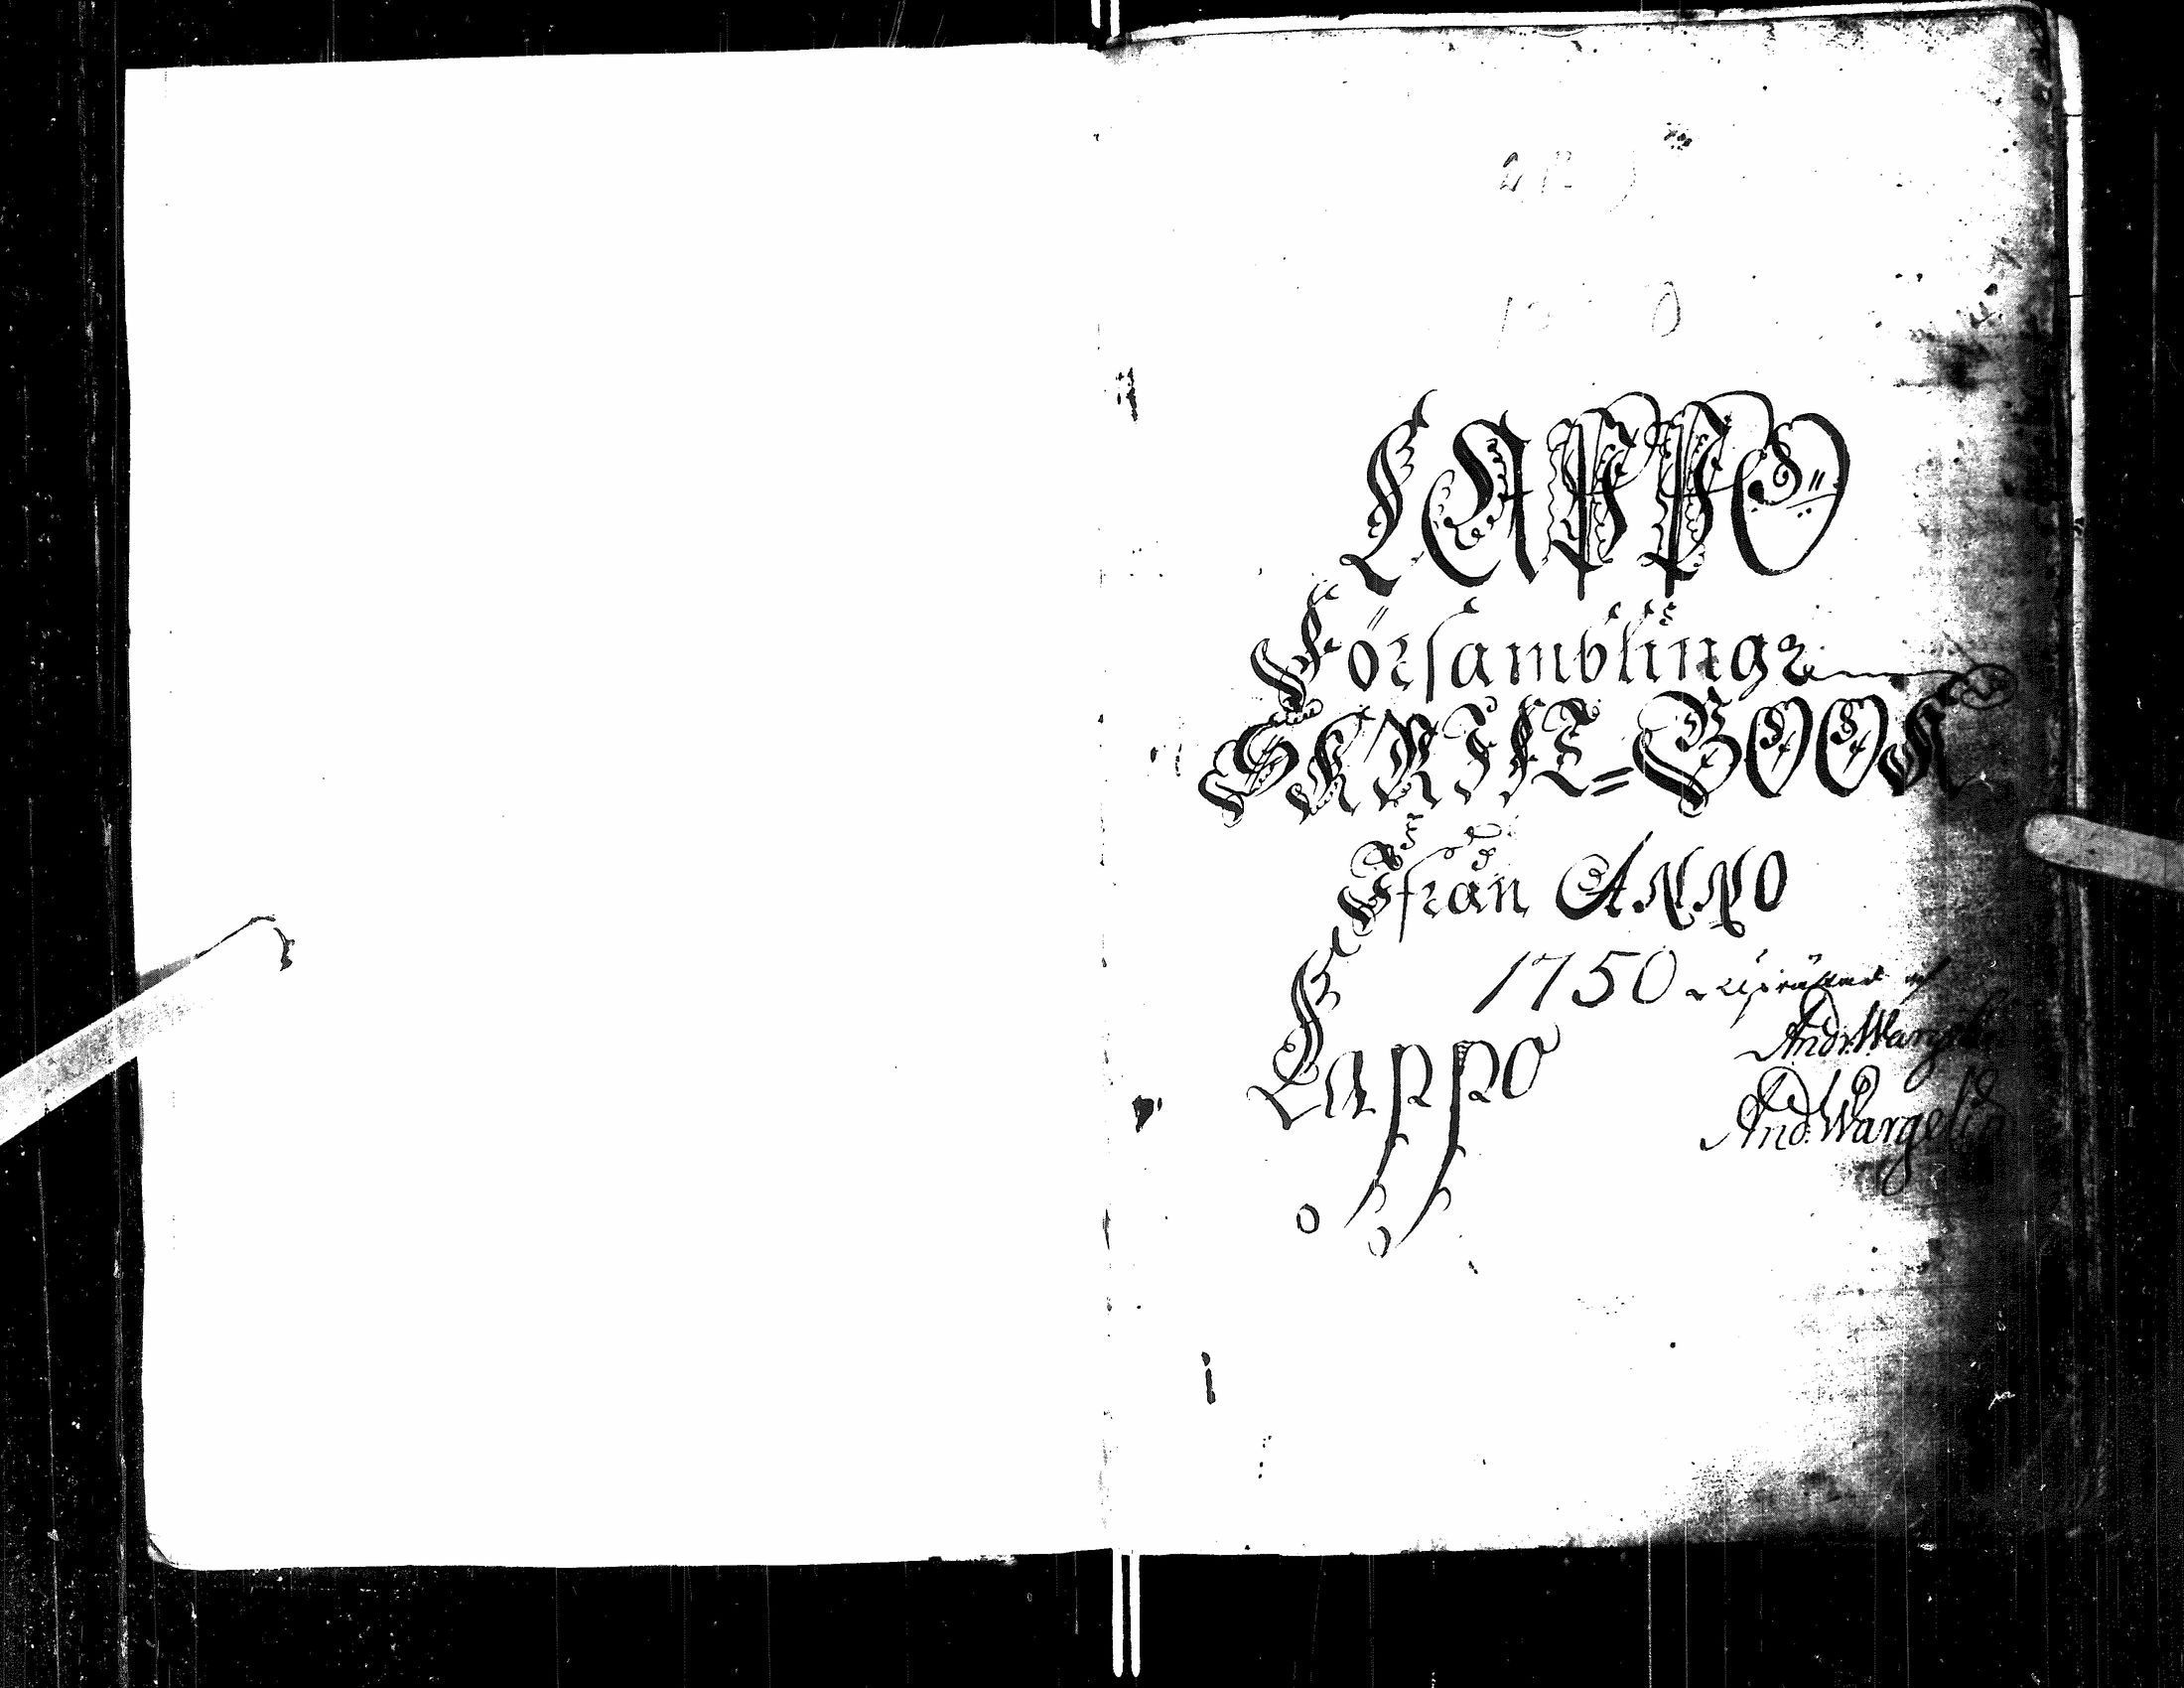 LAPPO
Församblings
SKRIFT=BOOK
Ifrån ANNO
1750 uprättad af
Andr. Wargelin
Lappo
And. Wargelin